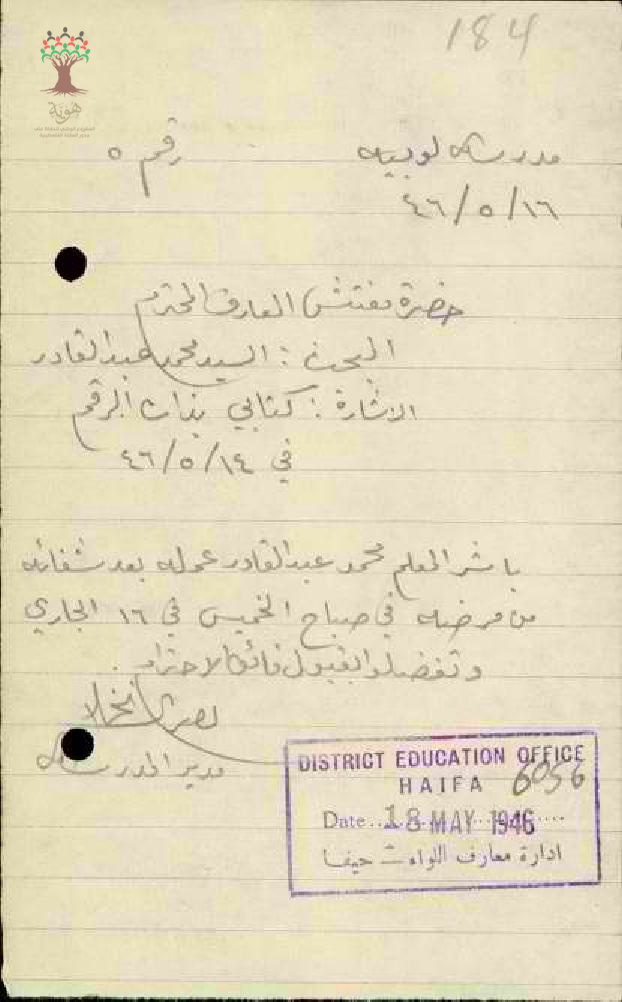 184
هوية
مدرسة لوبيه
رقم ٥
٤٦/٥/١٦
حضرة مفتش المعارف المحترم
البحث : السيد محمد عبد القادر
الاشارة : كتابي بذات الرقم
في ٤٦/٥/١٤
باشر المعلم محمد عبد القادر عمله بعد شفائه
من مرضه في صباح الخميس في ١٦ الجاري
وتفضلوا بقبول فائق الاحترام .
مدير المدرسة
DISTRICT EDUCATION OFFICE
HAIFA 6056
Date 18 MAY 1946
ادارة معارف اللواء - حيفا